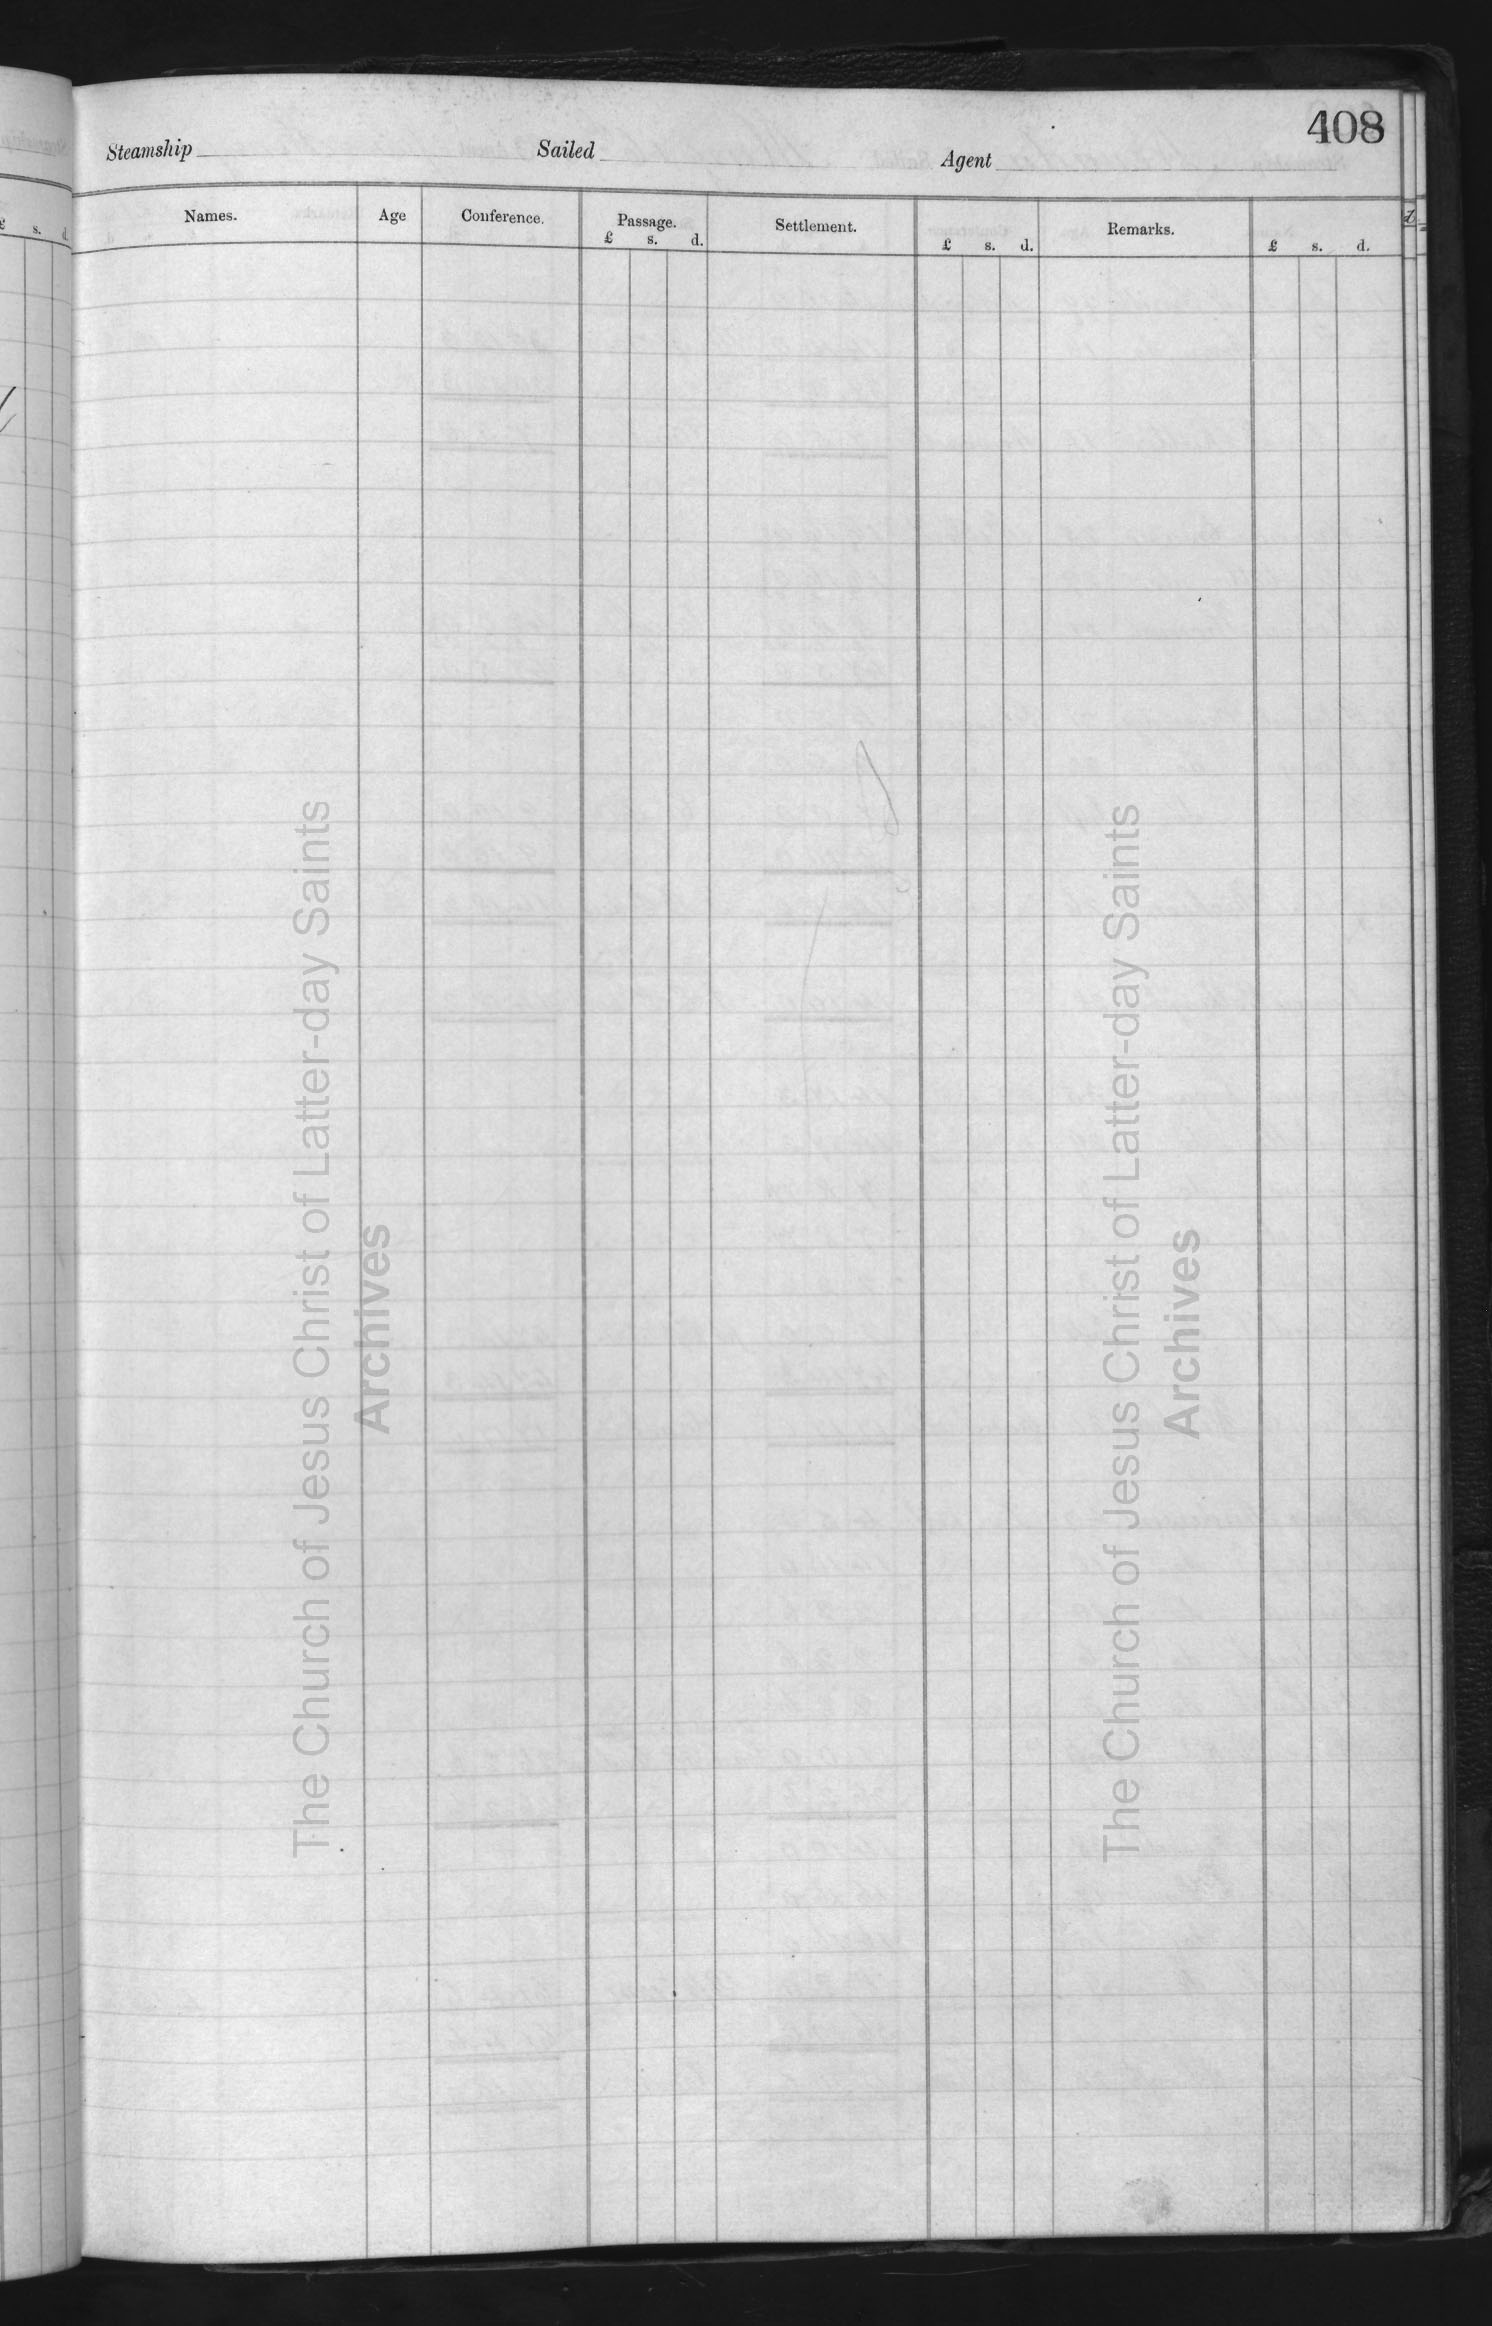 408
Steamship Sailed Agent
Names. Age Conference. Passage. Settlement. Remarks.
£ s. d. £ s. d. £ s. d.
£ s. d.
The Church of Jesus Christ of Latter-day Saints
Archives
The Church of Jesus Christ of Latter-day Saints
Archives